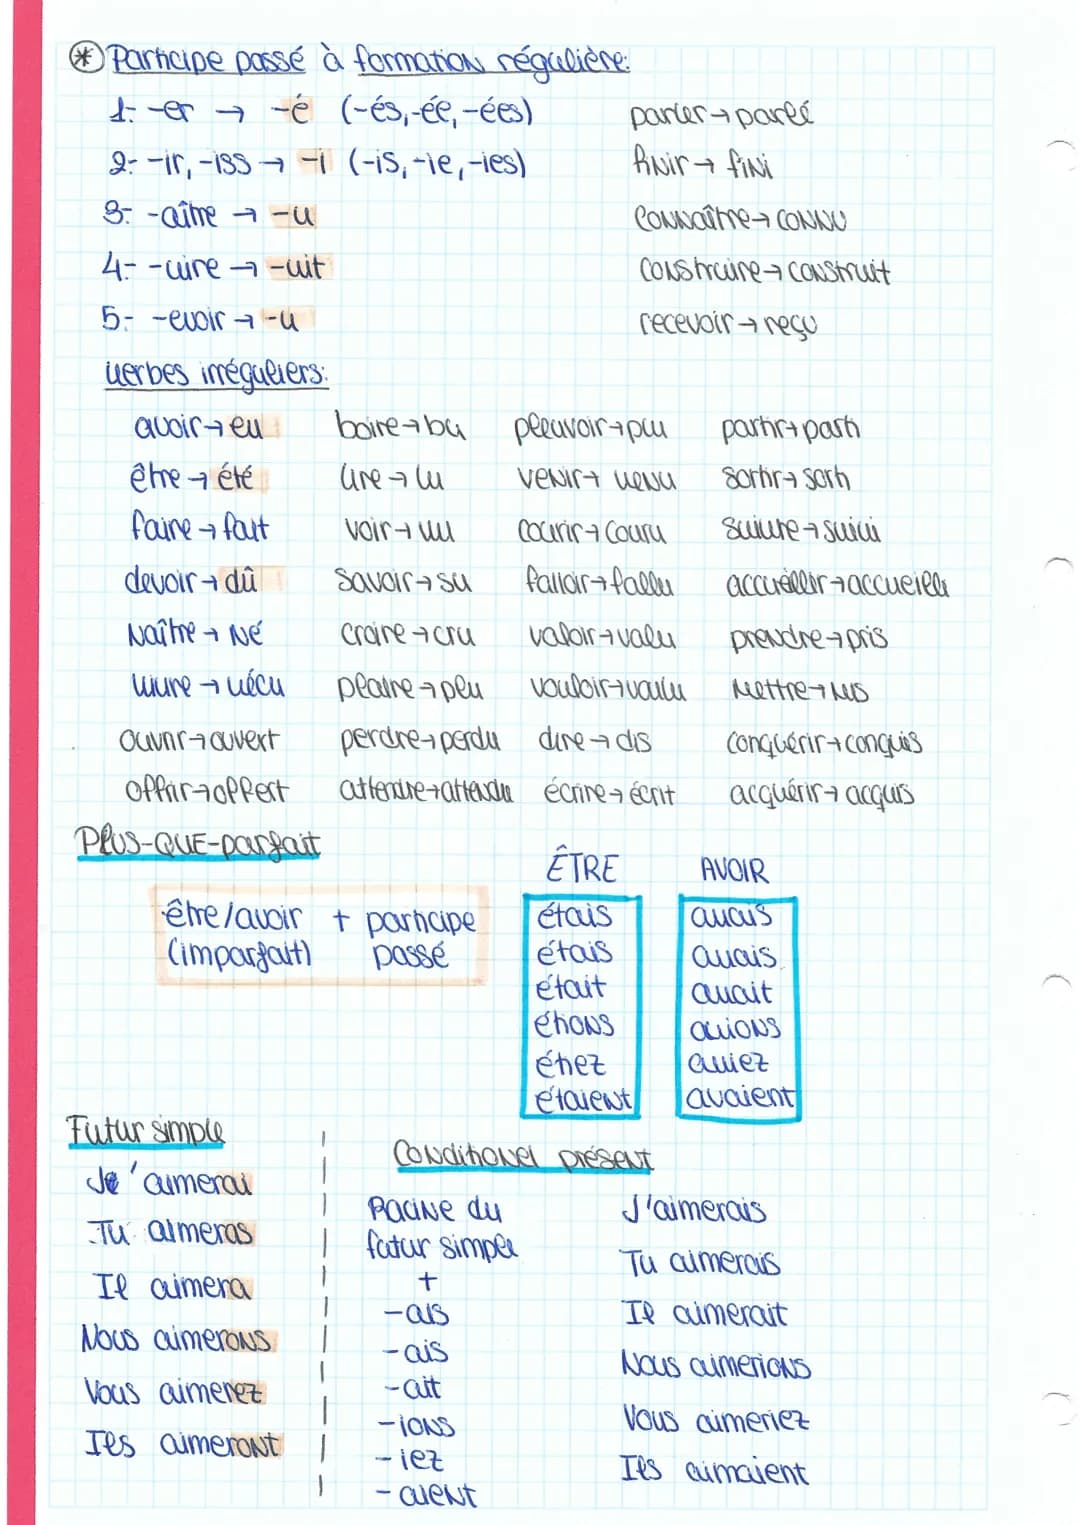 * Participe passé à formation régulière:
1- -er → -é (-és,-ée,-ées) parler→parlé
2- -ir, -iss → -i (-is,-ie,-ies) finir→ fini
3- -aître → -u connaître→ connu
4- -uire → -uit construire→ construit
5- -evoir → -u recevoir → reçu
verbes irréguliers:
avoir→ eu boire→bu pleuvoir→plu partir→parti
être → été lire → lu venir→ venu sortir→ sorti
faire → fait voir→ vu courir→ couru suivre→ suivi
devoir→ dû savoir→ su falloir→ fallu accueillir→accueilli
Naître → Né croire→cru valoir→valu prendre→pris
vivre → vécu plaire→plu vouloir→voulu Mettre→ Mis
ouvrir→ouvert perdre→perdu dire→ dis conquérir→conquis
offrir→offert attendre→attendu écrire→ écrit acquérir→ acquis
Plus-que-parfait
ÊTRE AVOIR
être/avoir + participe
(imparfait) passé
étais avais
étais avais
était avait
étions avions
étiez aviez
étaient avaient
Futur simple
J'aimerai
Tu aimeras
Il aimera
Nous aimerons
Vous aimerez
Ils aimeront
Conditionel présent
Racine du
futur simple
+
-ais
-ais
-ait
-ions
-iez
-aient
J'aimerais
Tu aimerais
Il aimerait
Nous aimerions
Vous aimeriez
Ils aimaient